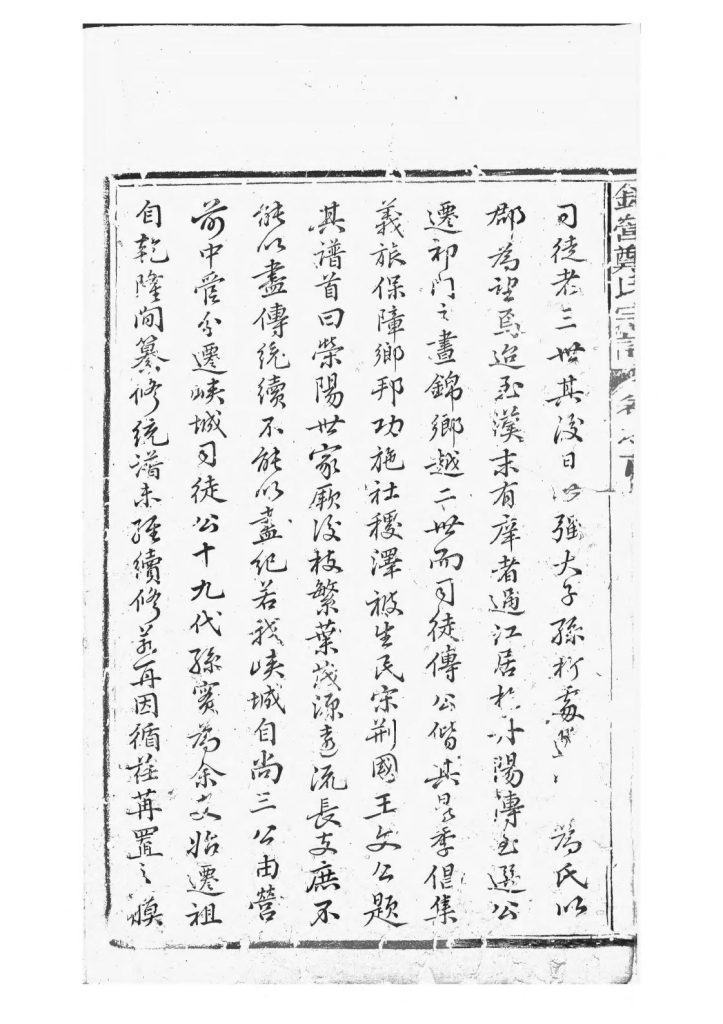 營鄭氏宗譜
司徒者三世其後日以强大子孫析處 為氏以
郡為望焉迨至漢末有庠者過江居於丹陽傳至選公
遷祁門之晝錦鄉越二世而司徒傳公偕其昆季倡集
義旅保障鄉邦功施社稷澤被生民宋荆國王文公題
其譜首曰滎陽世家厥後枝繁葉茂源遠流長支庶不
能以盡傳統續不能以盡紀若我峽城自尚三公由營
前中營分遷峽城司徒公十九代孫實為余支始遷祖
自乾隆間纂修統譜未經續修若再因循荏苒置之膜